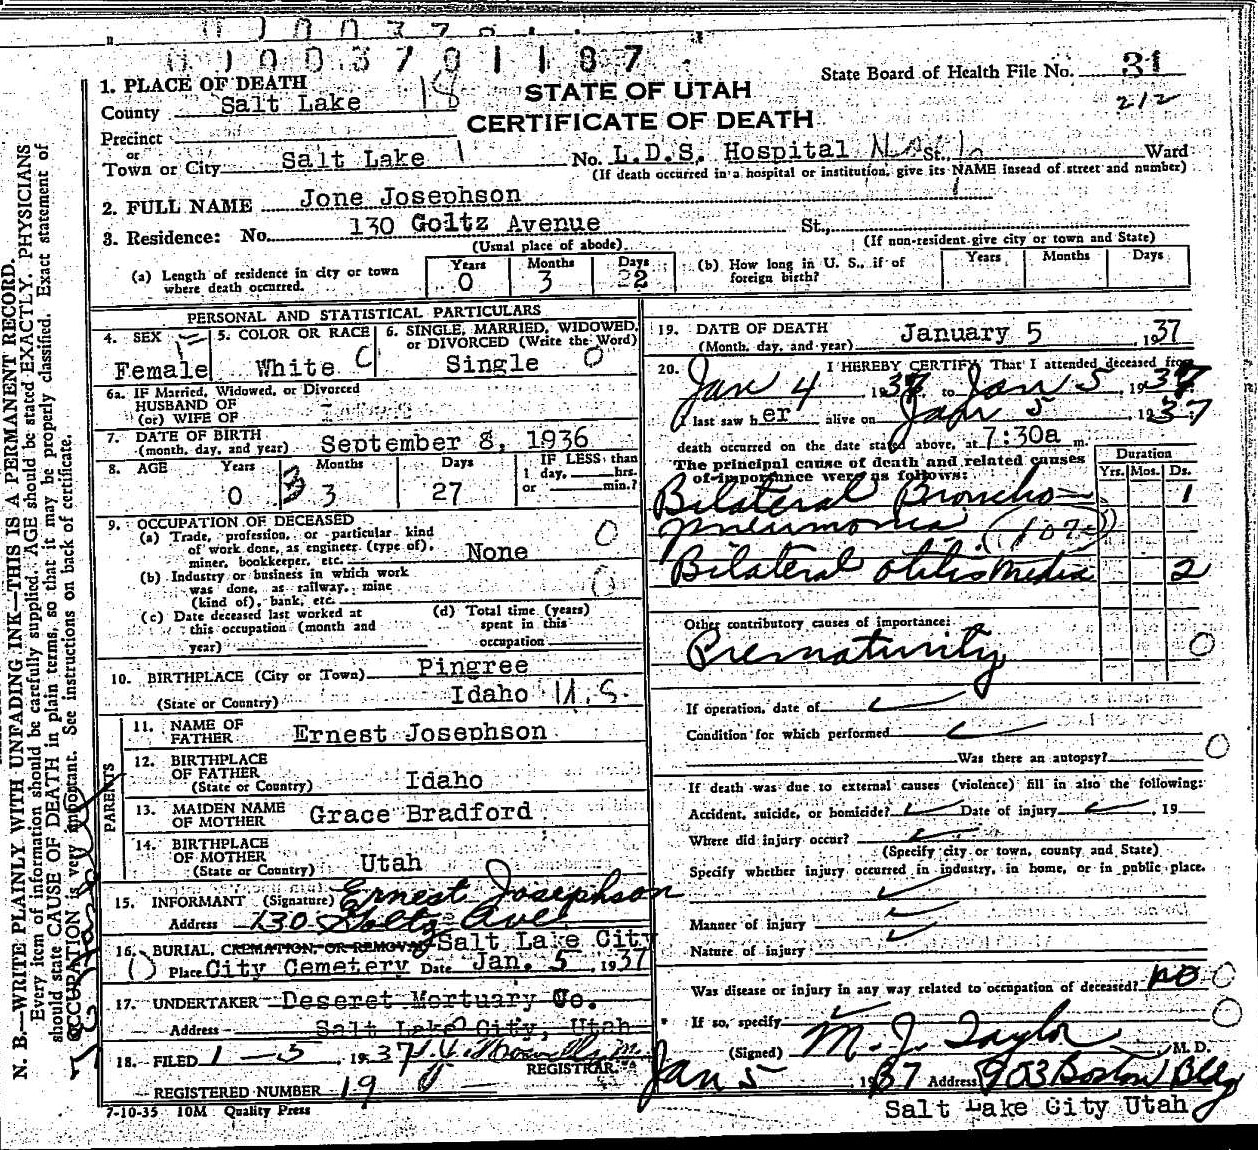 0100370
01003701187
State Board of Health File No. 31
212
1. PLACE OF DEATH
County Salt Lake 18
STATE OF UTAH
CERTIFICATE OF DEATH
Precinct
or
Town or City Salt Lake No. L.D.S. Hospital St. Ward
(If death occurred in a hospital or institution, give its NAME insead of street and number)
2. FULL NAME Jone Josephson
3. Residence: No. 130 Goltz Avenue St.,
(Usual place of abode) (If non-resident give city or town and State)
(a) Length of residence in city or town where death occurred. Years 0 Months 3 Days 22
(b) How long in U. S., if of foreign birth? Years Months Days
PERSONAL AND STATISTICAL PARTICULARS
4. SEX Female
5. COLOR OR RACE White C
6. SINGLE, MARRIED, WIDOWED, or DIVORCED (Write the Word) Single 0
6a. IF Married, Widowed, or Divorced
HUSBAND OF
(or) WIFE OF
7. DATE OF BIRTH
(month, day, and year) September 8, 1936
8. AGE Years 0 Months 3 Days 27 IF LESS than 1 day, hrs. or min.?
9. OCCUPATION OF DECEASED
(a) Trade, profession, or particular kind
of work done, as engineer (type of),
miner, bookkeeper, etc. None 0
(b) Industry or business in which work
was done, as railway, mine
(kind of), bank, etc. 0
(c) Date deceased last worked at
this occupation (month and
year)
(d) Total time (years)
spent in this
occupation
10. BIRTHPLACE (City or Town) Pingree
(State or Country) Idaho U.S.
PARENTS
11. NAME OF FATHER Ernest Josephson
12. BIRTHPLACE OF FATHER
(State or Country) Idaho
13. MAIDEN NAME OF MOTHER Grace Bradford
14. BIRTHPLACE OF MOTHER
(State or Country) Utah
15. INFORMANT (Signature) Ernest Josephson
Address 130 Goltz Ave.
16. BURIAL, CREMATION, OR REMOVAL Salt Lake City
Place City Cemetery Date Jan. 5, 1937
17. UNDERTAKER Deseret Mortuary Co.
Address Salt Lake City, Utah
18. FILED 1-5 1937
REGISTRAR.
REGISTERED NUMBER 19
7-10-35 10M Quality Press
19. DATE OF DEATH
(Month, day, and year) January 5, 1937
20. I HEREBY CERTIFY, That I attended deceased from
Jan 4 1937 to Jan 5 1937
I last saw her alive on Jan 5 1937
death occurred on the date stated above, at 7:30a m.
The principal cause of death and related causes
of importance were as follows:
Duration
Yrs. Mos. Ds.
Bilateral Broncho- 1
pneumonia (107a)
Bilateral otitis media 2
Other contributory causes of importance:
Prematurity 0
If operation, date of
Condition for which performed
Was there an autopsy? 0
If death was due to external causes (violence) fill in also the following:
Accident, suicide, or homicide? Date of injury 19
Where did injury occur?
(Specify city or town, county and State)
Specify whether injury occurred in industry, in home, or in public place.
Manner of injury
Nature of injury
Was disease or injury in any way related to occupation of deceased? no 0
If so, specify 0
(Signed) M. J. Taylor M. D.
Jan 5 1937 Address 903 Boston Bldg
Salt Lake City Utah
N. B.—WRITE PLAINLY WITH UNFADING INK—THIS IS A PERMANENT RECORD.
Every item of information should be carefully supplied. AGE should be stated EXACTLY. PHYSICIANS
should state CAUSE OF DEATH in plain terms, so that it may be properly classified. Exact statement of
OCCUPATION is very important. See instructions on back of certificate.